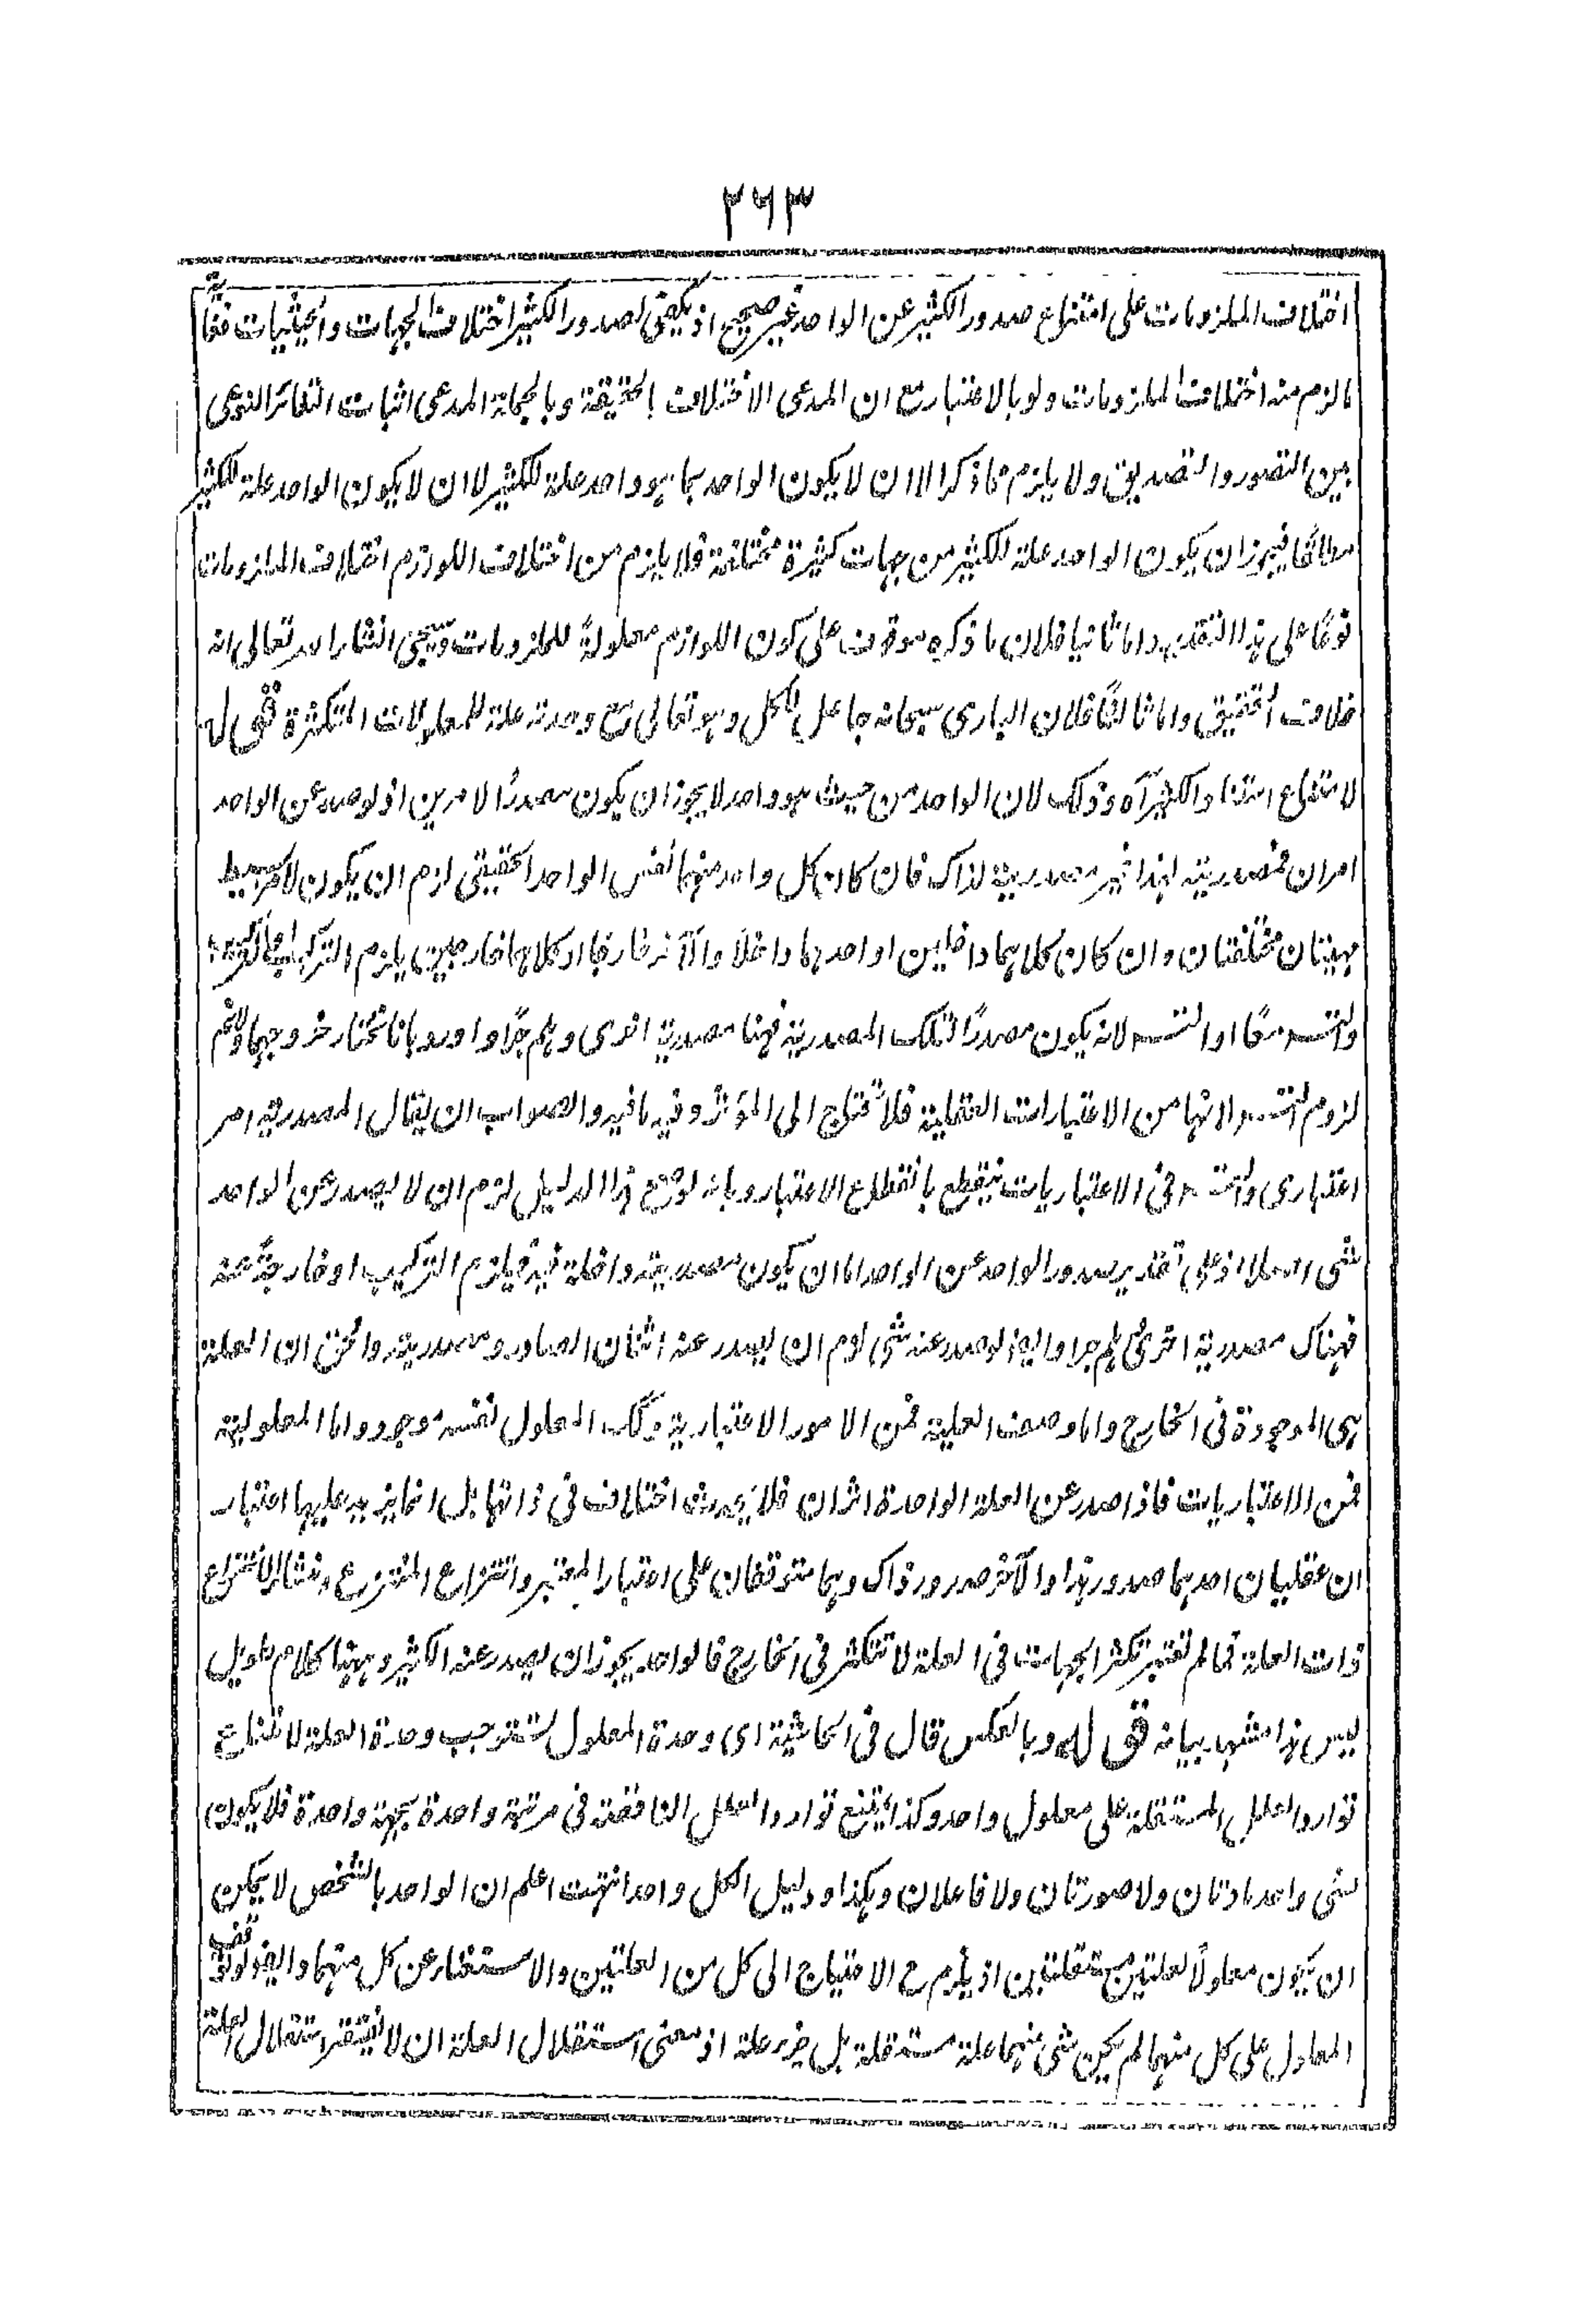 ٢٦٣
اختلاف الملزومات على امتناع صدور الكثير عن الواحد غير صحيح اذ يكفى لصدور الكثير اختلاف الجهات والحيثيات
ما لزم منه اختلاف الملزومات ولو بالاعتبار مع ان المدعى الاختلاف بالحقيقة وبالجملة المدعى اثبات التغائر النوعى
بين التصور والتصديق ولا يلزم مما ذكر الا ان لا يكون الواحد بما هو واحد علة للكثير لا ان لا يكون الواحد علة للكثير
مطلقا فيجوز ان يكون الواحد علة للكثير من جهات كثيرة مختلفة فلا يلزم من اختلاف اللوازم اختلاف الملزومات
نوعًا على هذا التقدير واما ثانيا فلان ما ذكره موقوف على كون اللوازم معلولةً للملزومات وسيجئ انشاء الله تعالى انه
خلاف التحقيق واما ثالثًا فلان البارى سبحانه جاعل للكل وهو تعالى مع وحدته علة للمعلولات المتكثرة قوله
لامتناع استناد الكثير آه وذلك لان الواحد من حيث هو واحد لا يجوز ان يكون مصدرًا لامرين اذ لو صدر عن الواحد
امران فمصدريته لهذا غير مصدريته لذاك فان كان كل واحد منهما نفس الواحد الحقيقى لزم ان يكون لامر بسيط
مهيتان مختلفتان وان كان كلاهما داخلين او احدهما داخلا والآخر خارجا او كلاهما خارجين يلزم التركيب
والتسلسل معًا او التسلسل لانه يكون مصدرًا لتلك المصدرية فهنا مصدرية اخرى وهلم جرًا واورد بانا نختار خروجهما ولا نم
لزوم التسلسل لانها من الاعتبارات العقلية فلا تحتاج الى المؤثر وفيه ما فيه والصواب ان يقال المصدرية امر
اعتبارى والتسلسل فى الاعتباريات ينقطع بانقطاع الاعتبار وبانه لو تم هذا الدليل لزم ان لا يصدر عن الواحد
شئ اصلا اذ على تقدير صدور الواحد عن الواحد اما ان يكون مصدريته داخلة فيه فيلزم التركيب او خارجة عنه
فهناك مصدرية اخرى وهلم جرا وايضا لو صدر عنه شئ لزم ان يصدر عنه اثنان الصادر ومصدريته والحق ان العلة
هى الموجودة فى الخارج واما وصف العلية فمن الامور الاعتبارية وكذلك المعلول نفسه موجود واما المعلولية
فمن الاعتباريات فاذا صدر عن العلة الواحدة اثران فلا يحدث اختلاف فى ذاتها بل انما يزيد عليها اعتبار
ان عقليان احدهما صدور هذا والآخر صدور ذاك وهما متوقفان على اعتبار المعتبر وانتزاع المنتزع ومنشأ الانتزاع
ذات العلة فما لم تعتبر تكثر الجهات فى العلة لا تتكثر فى الخارج فالواحد يجوز ان يصدر عنه الكثير وههنا كلام طويل
ليس هذا مشهد بيانه قوله وبالعكس قال فى الحاشية اى وحدة المعلول تستوجب وحدة العلة لامتناع
توارد العلل المستقلة على معلول واحد وكذا يمتنع توارد العلل الناقصة فى مرتبة واحدة بجهة واحدة فلا يكون
لشئ واحد مادتان ولا صورتان ولا فاعلان وهكذا ودليل الكل واحد انتهت اعلم ان الواحد بالشخص لا يمكن
ان يكون معلولًا لعلتين مستقلتين اذ يلزم ح الاحتياج الى كل من العلتين والاستغناء عن كل منهما وايضا لو توقف
المعلول على كل منهما لم يكن شئ منهما علة مستقلة بل جزء علة اذ معنى استقلال العلة ان لا يفتقر استقلال العلة